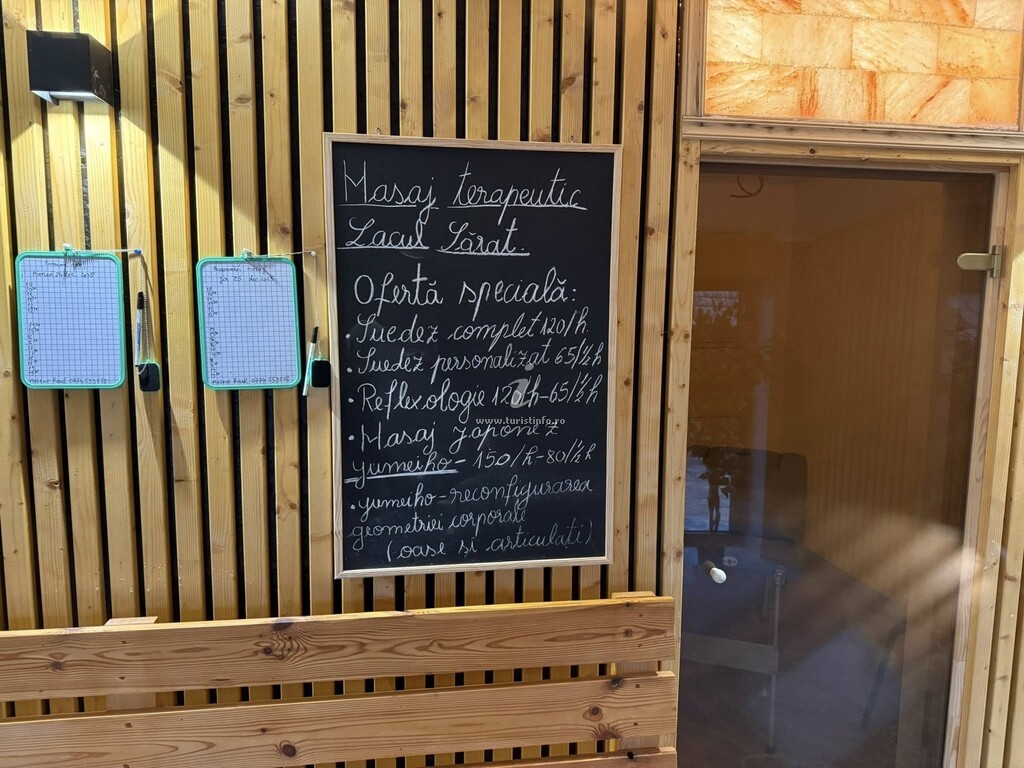 Masaj terapeutic
Lacul Sărat.
Ofertă specială:
• Suedez complet 120/h
• Suedez personalizat 65/½h
• Reflexologie 120/h-65/½h
• Masaj Japonez
yumeiho - 150/h-80/½h
• yumeiho-reconfigurarea
geometriei corporale
(oase și articulații)
www.turistinfo.ro